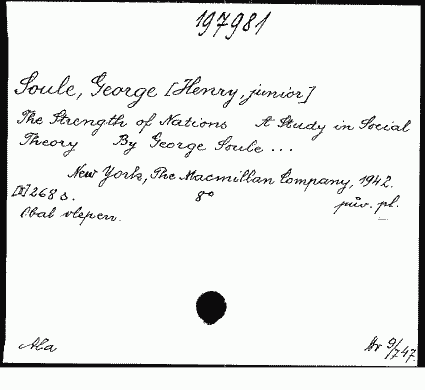 197981
Soule, George [Henry, junior]
The Strength of Nations A Study in Social
Theory By George Soule ...
New York, The Macmillan Company, 1942.
268 s. 8° pův. pl.
Obal vlepen.
Hr 9/747